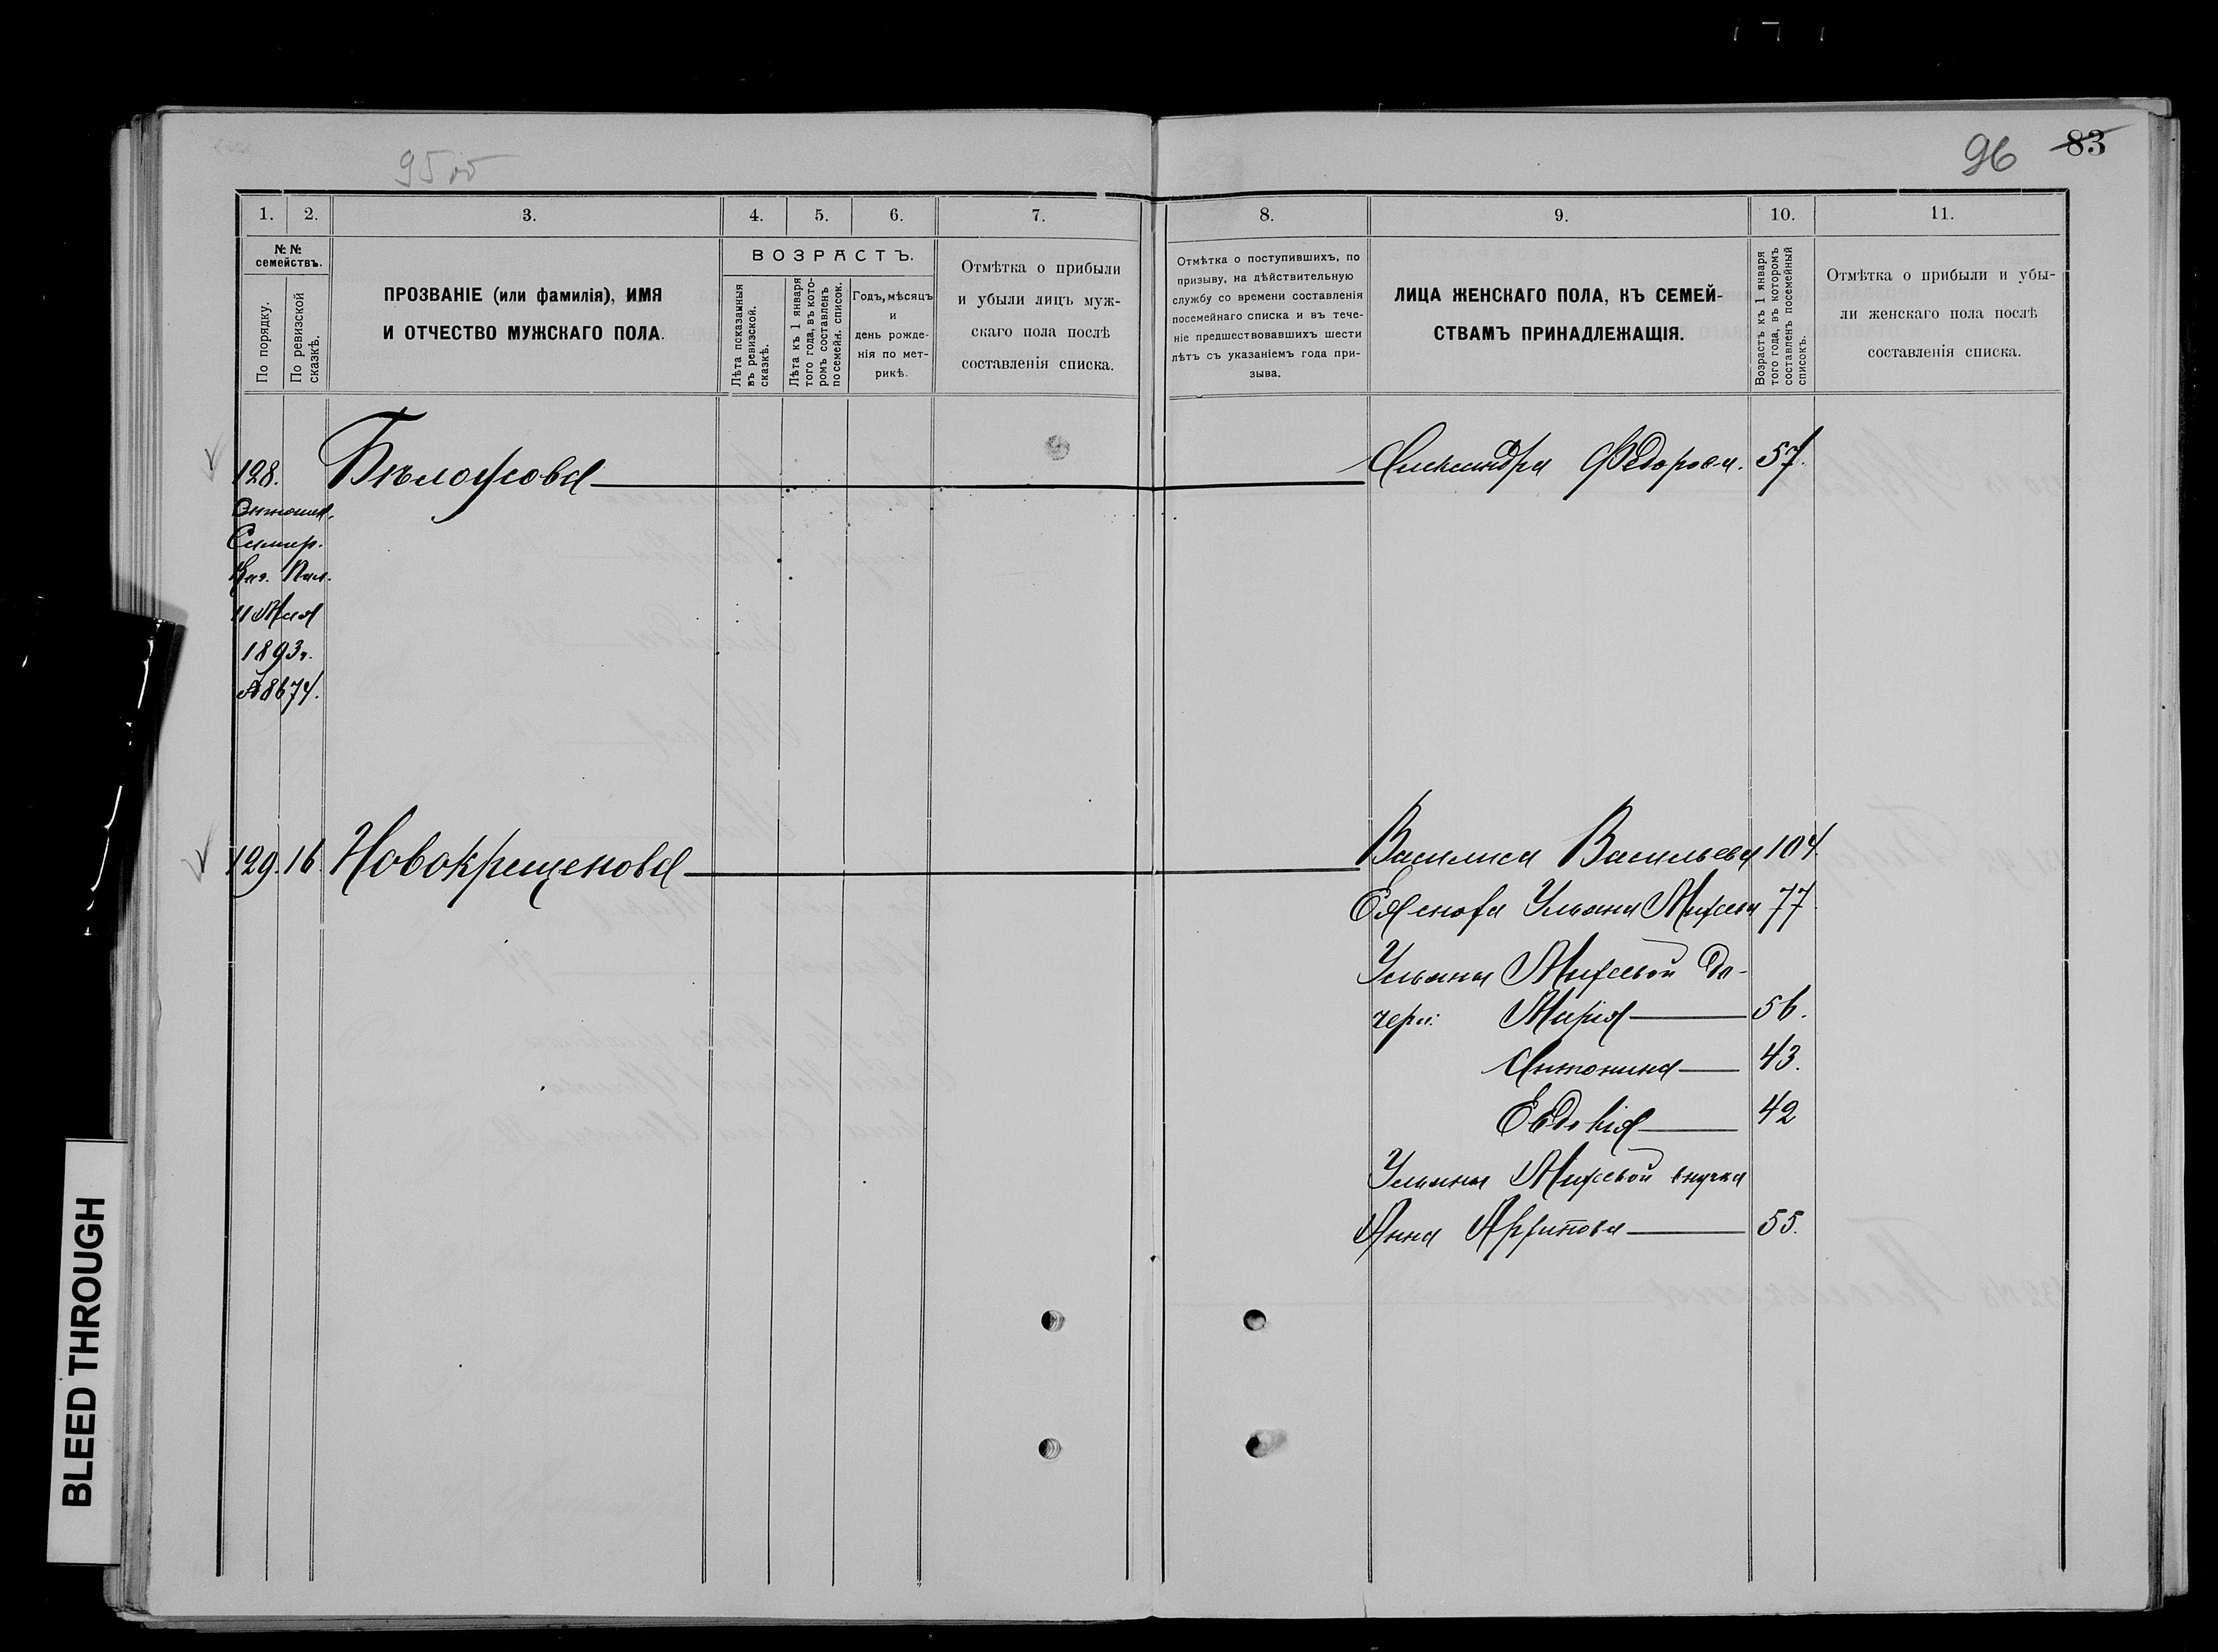 95 об
96 83
1. 2. 3. 4. 5. 6. 7.
№ № семействъ.
По порядку.
По ревизской сказкѣ.
ПРОЗВАНІЕ (или фамилія), ИМЯ
И ОТЧЕСТВО МУЖСКАГО ПОЛА.
ВОЗРАСТЪ.
Лѣта показанныя
въ ревизской.
сказкѣ.
Лѣта къ 1 января
того года, въ кото-
ромъ составленъ
посемейн. список.
Годъ, мѣсяцъ
и
день рожде-
нія по мет-
рикѣ.
Отмѣтка о прибыли
и убыли лицъ муж-
скаго пола послѣ
составленія списка.
8. 9. 10. 11.
Отмѣтка о поступившихъ, по
призыву, на дѣйствительную
службу со времени составленія
посемейнаго списка и въ тече-
ніе предшествовавшихъ шести
лѣтъ съ указаніемъ года при-
зыва.
ЛИЦА ЖЕНСКАГО ПОЛА, КЪ СЕМЕЙ-
СТВАМЪ ПРИНАДЛЕЖАЩІЯ.
Возрастъ къ 1 января
того года, въ которомъ
составленъ посемейный
списокъ.
Отмѣтка о прибыли и убы-
ли женскаго пола послѣ
составленія списка.
128. Александра Федорова. 57.
Каз. Пал.
11 Мая
1893 г.
№ 8674.
129. 16 Новокрещенова Василиса Васильева 104.
Ея сноха Ульяна Михеева 77
Ульяны Михеевой до-
чери: Марія 56.
Антонина 43.
Евдокія 42
Ульяны Михеевой внучка
Анна 55.
BLEED THROUGH